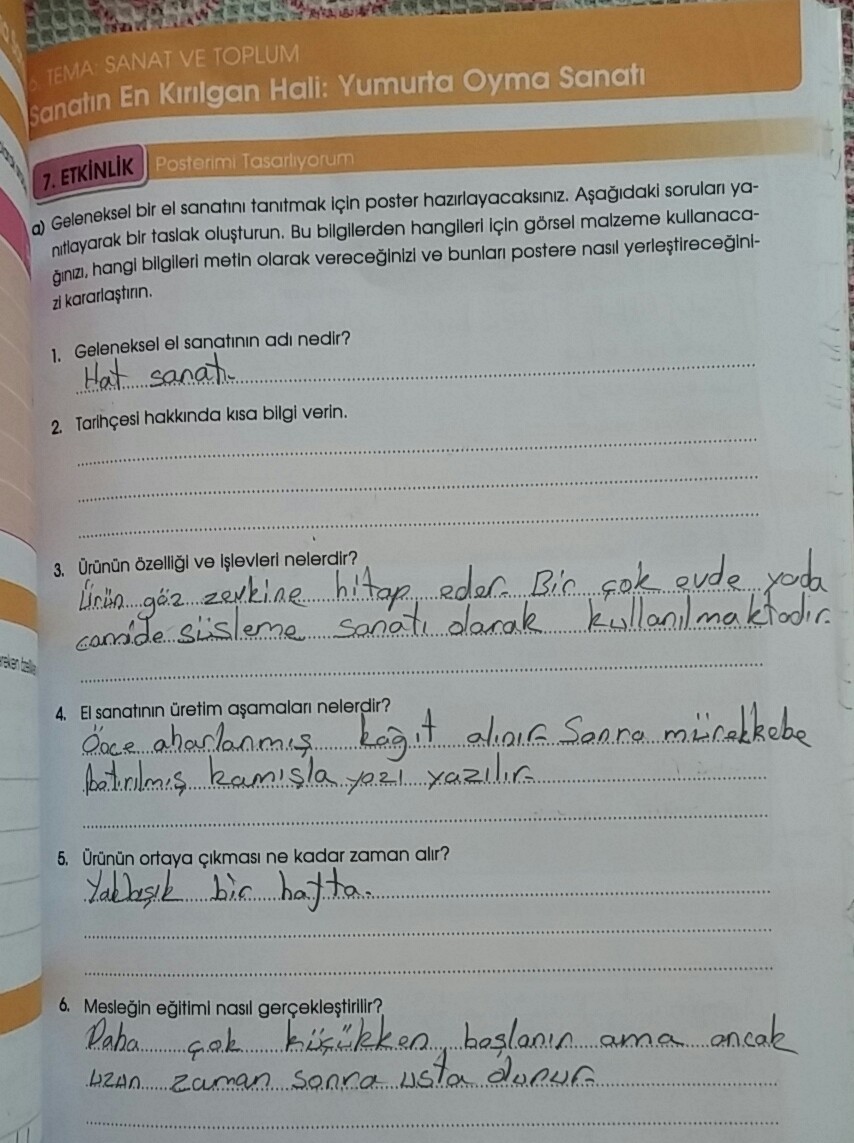 6. TEMA: SANAT VE TOPLUM
Sanatın En Kırılgan Hali: Yumurta Oyma Sanatı
7. ETKİNLİK Posterimi Tasarlıyorum
a) Geleneksel bir el sanatını tanıtmak için poster hazırlayacaksınız. Aşağıdaki soruları ya-
nıtlayarak bir taslak oluşturun. Bu bilgilerden hangileri için görsel malzeme kullanaca-
ğınızı, hangi bilgileri metin olarak vereceğinizi ve bunları postere nasıl yerleştireceğini-
zi kararlaştırın.
1. Geleneksel el sanatının adı nedir?
Hat sanatı.
2. Tarihçesi hakkında kısa bilgi verin.
3. Ürünün özelliği ve işlevleri nelerdir?
Ürün göz zevkine hitap eder. Bir çok evde yada
camide süsleme sanatı olarak kullanılmaktadır.
4. El sanatının üretim aşamaları nelerdir?
Önce aharlanmış kağıt alınır. Sonra mürekkebe
batırılmış kamışla yazı yazılır.
5. Ürünün ortaya çıkması ne kadar zaman alır?
Yaklaşık bir hafta.
6. Mesleğin eğitimi nasıl gerçekleştirilir?
Daha çok küçükken başlanır ama ancak
uzun zaman sonra usta olunur.